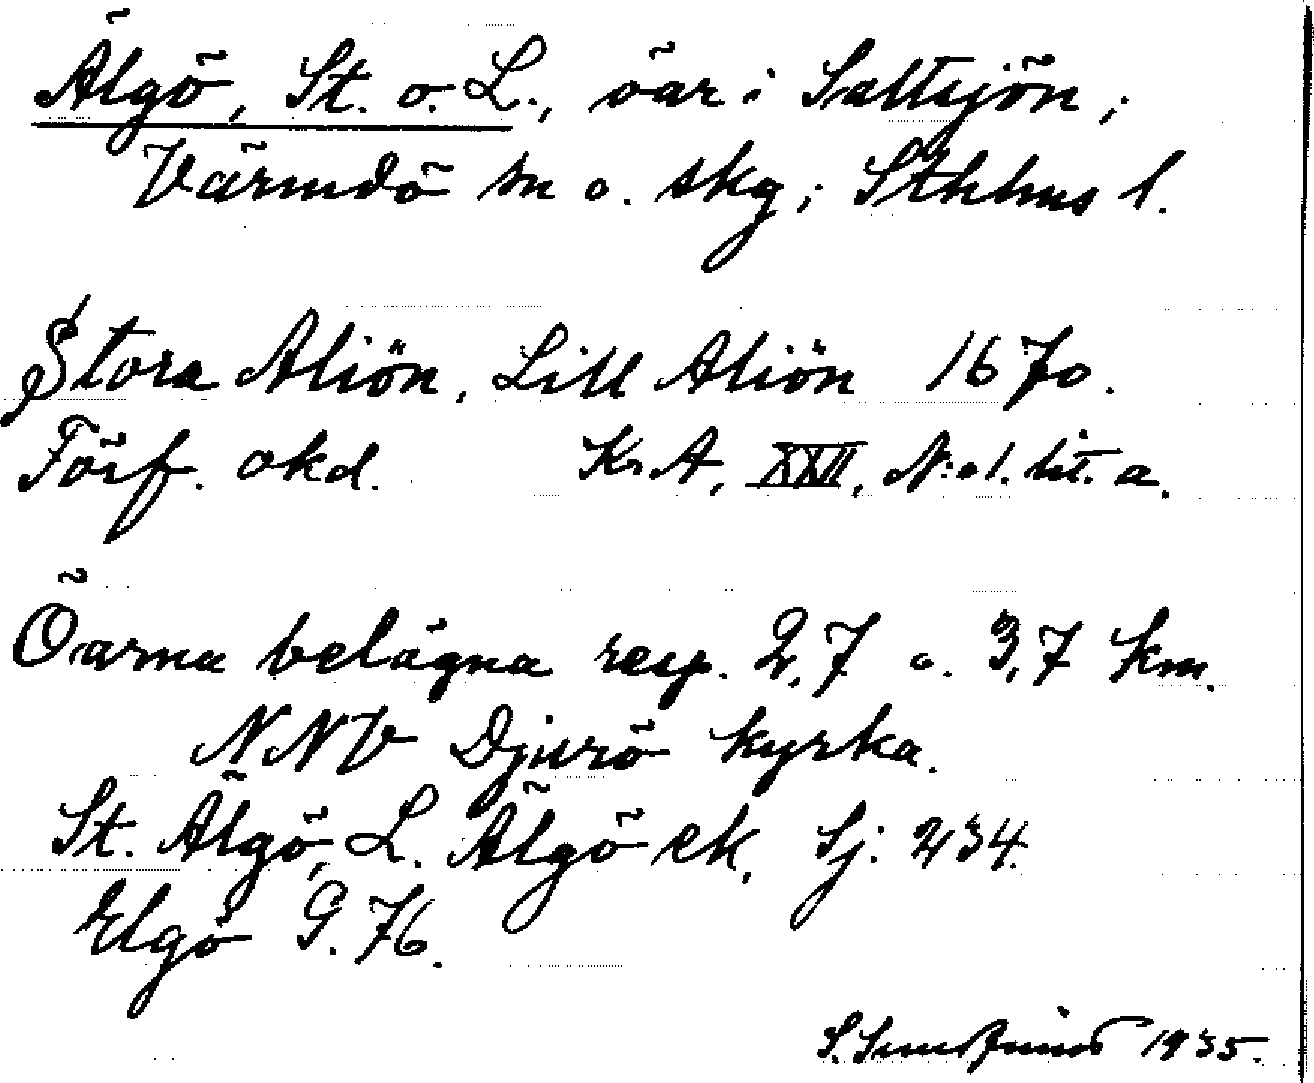 Älgö, St. o. L., öar i Saltsjön;
Värmdö sn o. skg; Sthlms l.
Stora Aliön, Lill Aliön 1670.
Förf. okd. Kr. A, XXII, N:o 1. lit. a.
Öarna belägna resp. 2,7 o. 3,7 km.
NNV Djurö kyrka.
St. Älgö, L. Älgö ek. Sj. 234.
Elgö G. 76.
S. 1935.